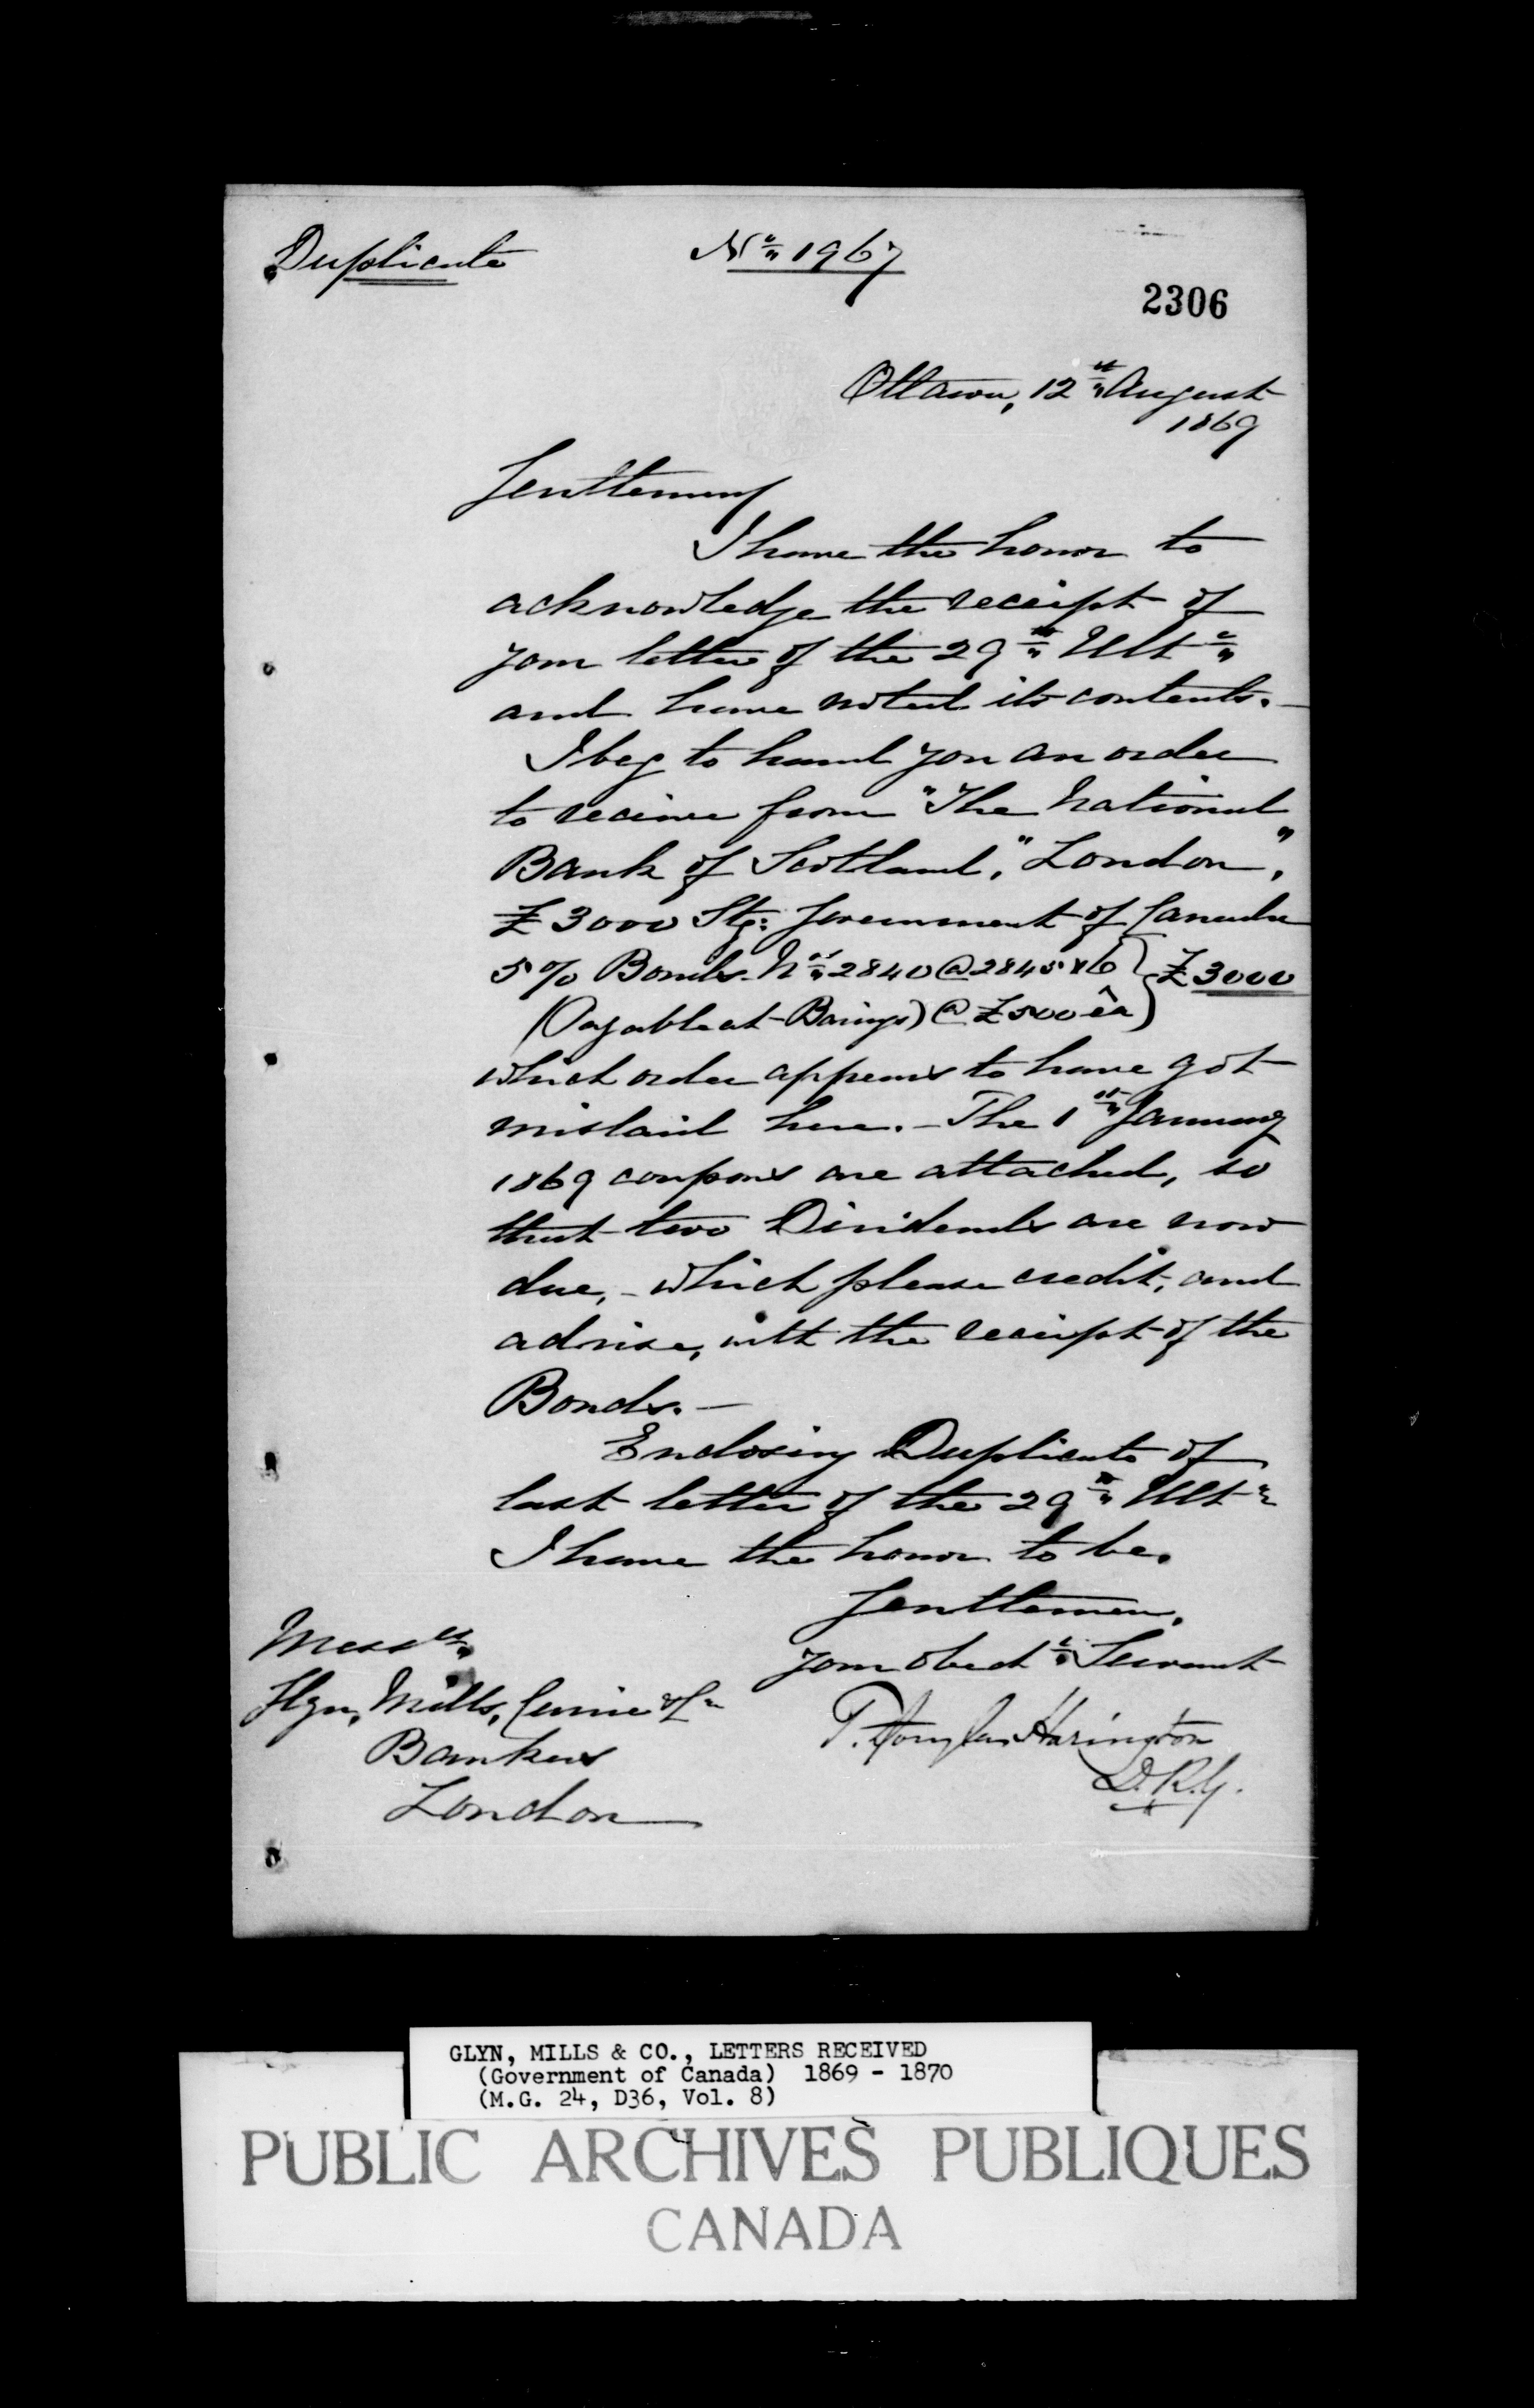 Duplicate
No. 1967
2306
Ottawa, 12th August
1869
Gentlemen
I have the honor to
acknowledge the receipt of
your letter of the 29th Ulto.
and have noted its contents.-
I beg to hand you an order
to receive from "The National
Bank of Scotland," London",
£3000 Stg: Government of Canada
5% Bonds. Nos. 2840 @ 2845 x 6 } £3000
(Payable at Barings) @ £500 ea }
which order appears to have got
mislaid here.- The 1st January
1869 coupons are attached, so
that two Dividends are now
due,- which please credit, and
advise, with the receipt of the
Bonds.-
Enclosing Duplicate of
last letter of the 29th Ulto.
I have the honor to be,
Gentlemen,
Your obedt. Servant
T. Douglas Harington
D.R.G.
Messrs.
Glyn, Mills, Currie & Co.
Bankers
London
GLYN, MILLS & CO., LETTERS RECEIVED
(Government of Canada) 1869 - 1870
(M.G. 24, D36, Vol. 8)
PUBLIC ARCHIVES PUBLIQUES
CANADA